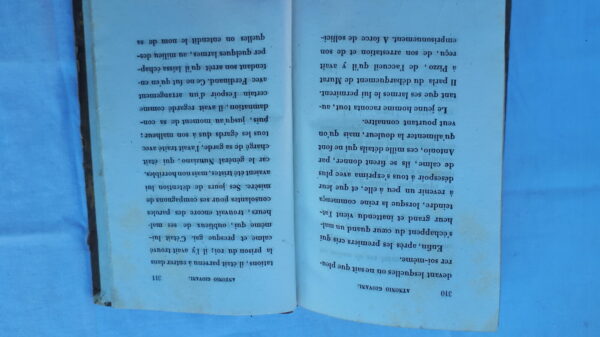 310 ANTONIO GIOVANI.
devant lesquelles on ne sait que plou-
roi-soi-même.
Enfin, après les premiers cris qui
s'échappent du cœur quand un mal-
heur grand et inattendu vient l'at-
teindre, lorsque la reine commença
à revenir un peu à elle, et que leur
désespoir à tous s'exprima avec plus
de calme, ils se firent donner, par
Antonio, ces mille détails qui ne font
qu'alimenter la douleur, mais qu'on
veut pourtant connaître.
Le jeune homme raconta tout, au-
tant que ses larmes le lui permirent.
Il parla du débarquement de Murat
à Pizzo, de l'accueil qu'il y avait
reçu, de son arrestation et de son
emprisonnement. A force de sollici-
ANTONIO GIOVANI. 311
tations, il était parvenu à entrer dans
la prison du roi; il l'y avait trouvé
calme et presque gai. C'était lui-
même qui, oublieux de ses mal-
heurs, trouvait encore des paroles
consolantes pour ses compagnons de
misère. Ses jours de détention lui
avaient été tristes, mais non horribles,
car le général Nunziane, qui était
chargé de sa garde, l'avait traité avec
tous les égards dus à son malheur;
puis, jusqu'au moment de sa con-
damnation, il avait regardé comme
certain l'espoir d'un arrangement
avec Ferdinand. Ce ne fut qu'en en-
tendant son arrêt qu'il laissa échap-
per quelques larmes, au milieu des-
quelles on entendit le nom de sa